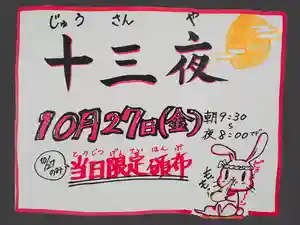 じゅう さん や
十三夜
10月27日(金)
朝9:30
〜
夜8:00まで
10/27のみ
とうじつ げん てい はん ぷ
当日限定 頒布